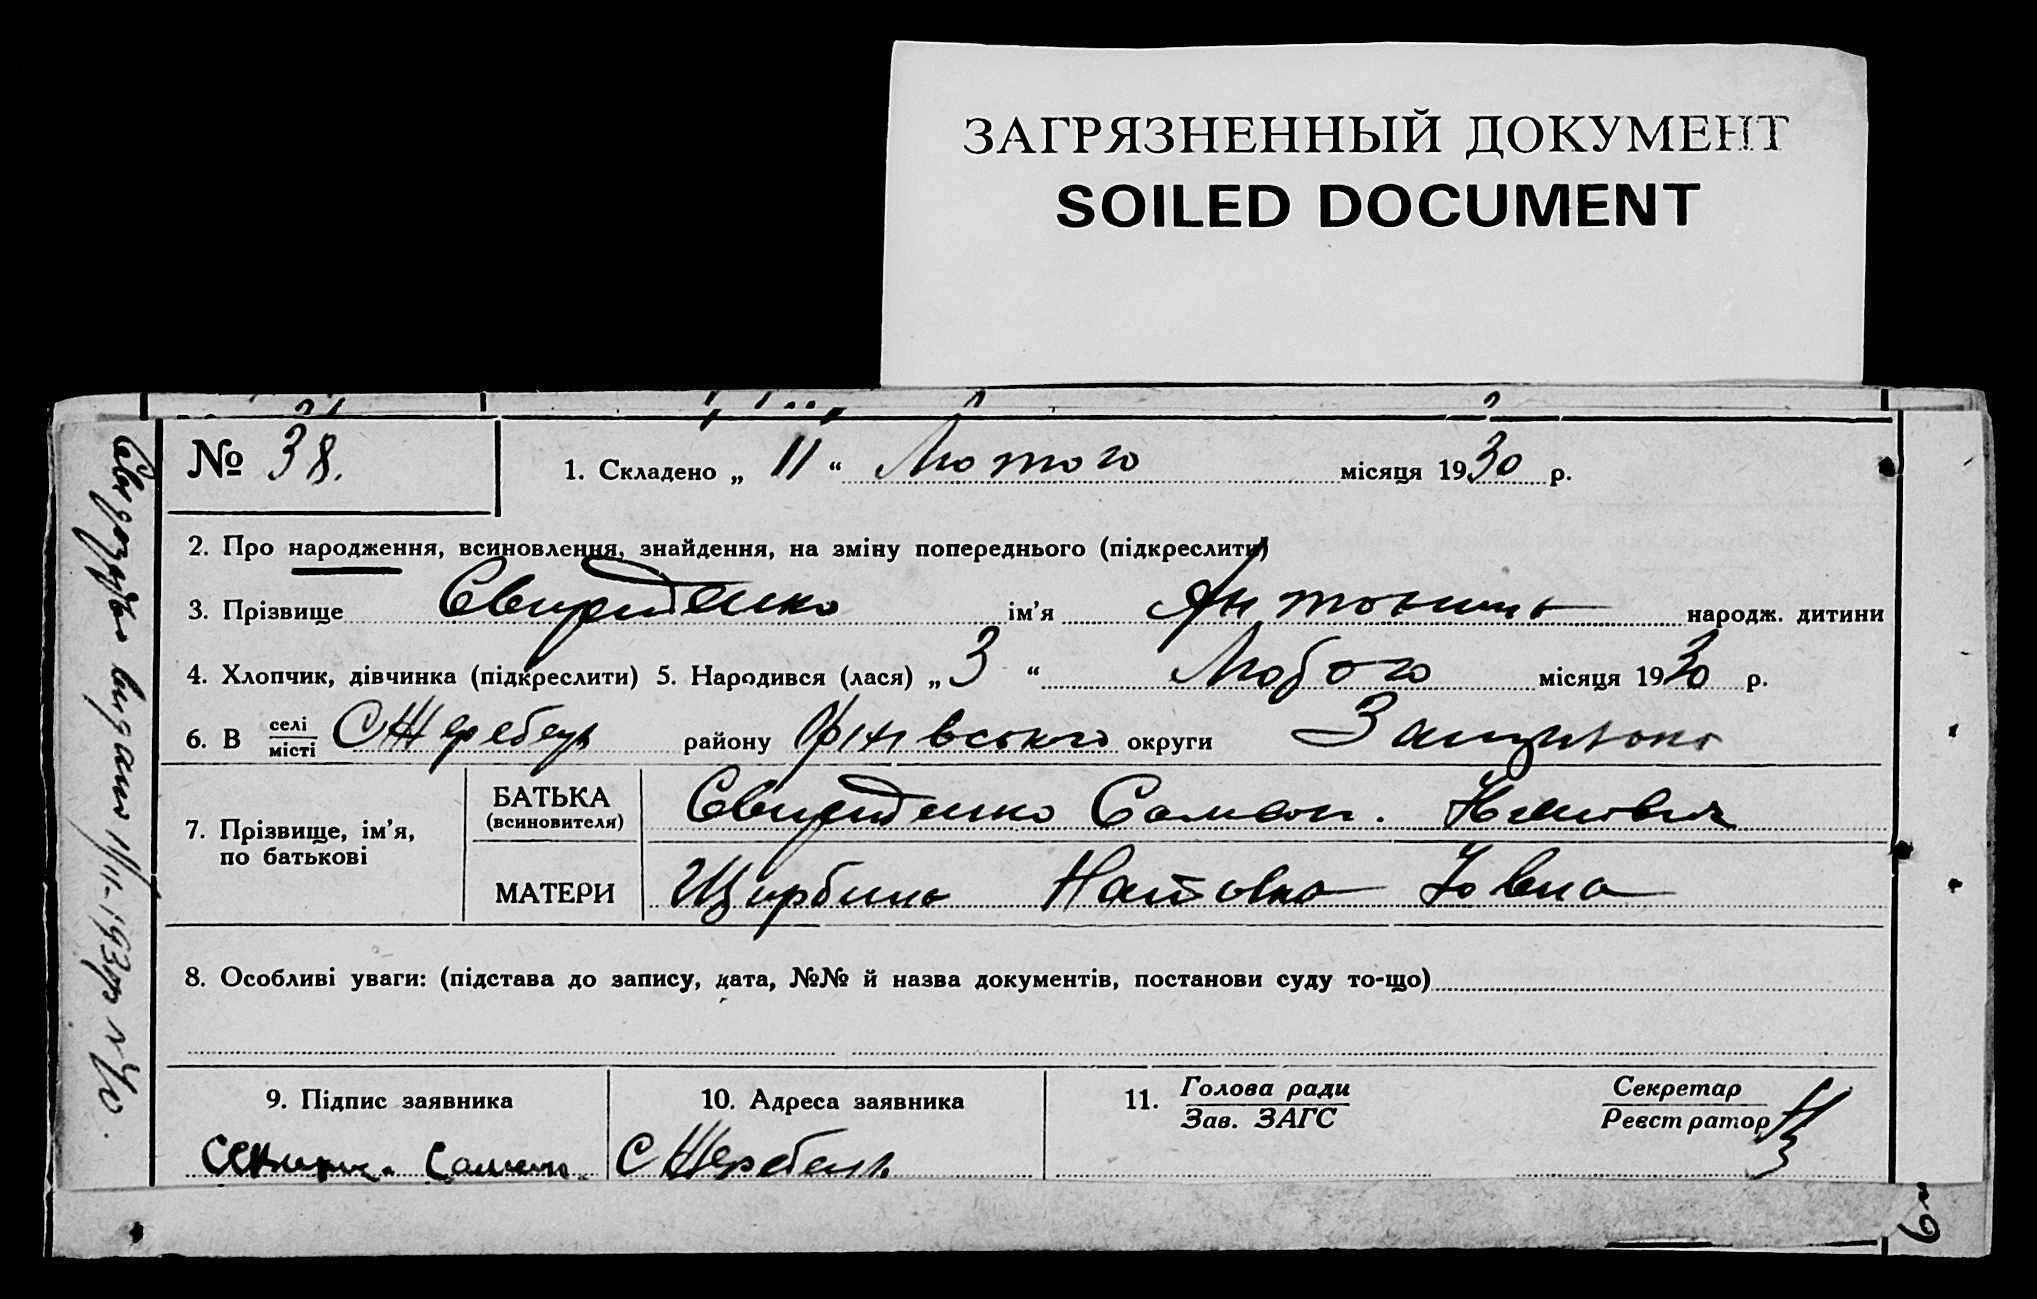 ЗАГРЯЗНЕННЫЙ ДОКУМЕНТ
SOILED DOCUMENT
№ 38. 1. Складено „ 11 “ Лютого місяця 1930 р.
2. Про народження, всиновлення, знайдення, на зміну попереднього (підкреслити)
3. Прізвище Свириденко ім’я народж. дитини
4. Хлопчик, дівчинка (підкреслити) 5. Народився (лася) „ 3 “ місяця 1930 р.
6. В селі місті С Жеребець району округи
7. Прізвище, ім’я, по батькові
БАТЬКА (всиновителя) Свириденко
МАТЕРИ Щирбина
8. Особливі уваги: (підстава до запису, дата, №№ й назва документів, постанови суду то-що)
9. Підпис заявника
10. Адреса заявника
С Жеребець
11. Голова ради
Зав. ЗАГС
Секретар
Реєстратор